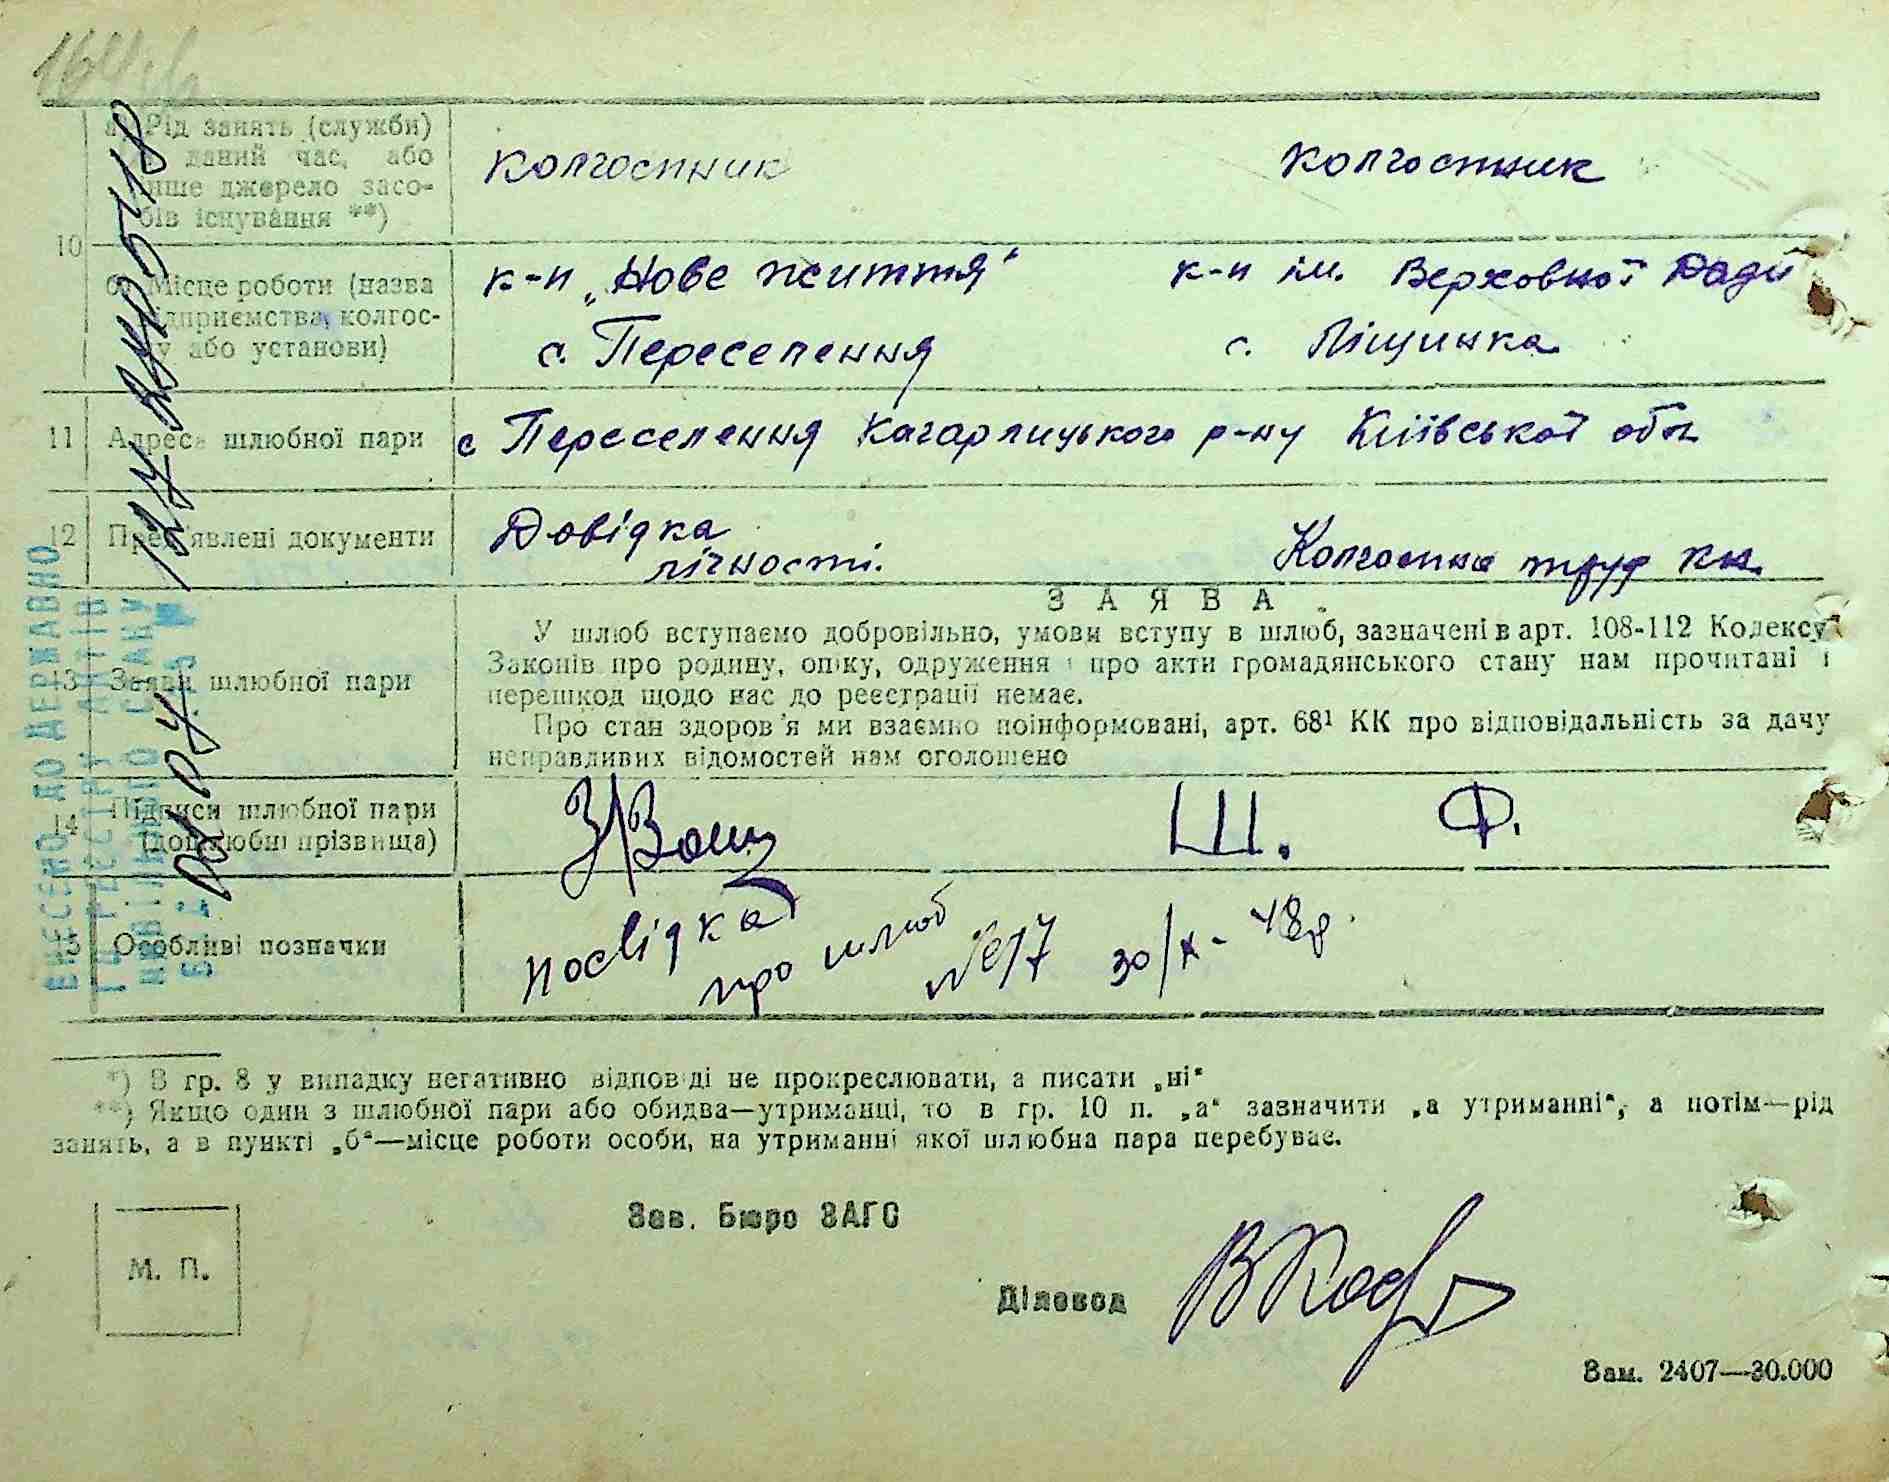 а) Рід занять (служби)
даний час, або
інше джерело засо-
бів існування **)
колгоспник
колгоспник
10
б) Місце роботи (назва
підприємства, колгос-
пу або установи)
к-п „Нове життя"
к-п ім. Верховної Ради
с. Переселення
с. Піщинка
11 Адреса шлюбної пари
с Переселення Кагарлицького р-ну Київської обл
12 Пред'явлені документи
Довідка
лічності.
Колгоспна труд кн.
ЗАЯВА
13 Заяви шлюбної пари
У шлюб вступаємо добровільно, умови вступу в шлюб, зазначені в арт. 108-112 Кодексу
Законів про родину, опіку, одруження і про акти громадянського стану нам прочитані і
перешкод щодо нас до реєстрації немає.
Про стан здоров'я ми взаємно поінформовані, арт. 68¹ КК про відповідальність за дачу
неправливих відомостей нам оголошено
14 Підписи шлюбної пари
(дошлюбні прізвища)
Ш. Ф.
15 Особливі позначки
Посвідка
про шлюб
30/X-48р.
ВНЕСЕНО ДО ДЕРЖАВНО
ГО РЕЄСТРУ АКТІВ
ЦИВІЛЬНОГО СТАНУ
*) В гр. 8 у випадку негативно відповіді не прокреслювати, а писати „ні"
**) Якщо один з шлюбної пари або обидва—утриманці, то в гр. 10 п. „а" зазначити „а утриманні", а потім—рід
занять, а в пункті „б"—місце роботи особи, на утриманні якої шлюбна пара перебуває.
Зав. Бюро ЗАГС
М. П.
Діловод
Зам. 2407—30.000